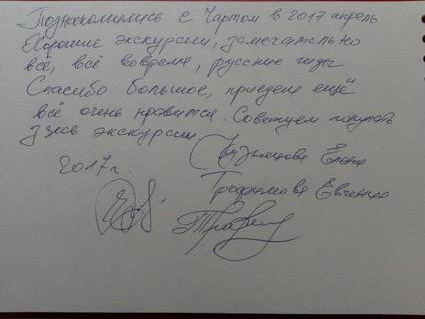 Познакомились с Чартом в 2017 апрель
Хорошие экскурсии, замечательно
всё, всё вовремя, русские гиды
Спасибо большое, приедем ещё
всё очень нравится. Советуем покупать
здесь экскурсии
Кузнецова Елена
2017г.
Трофимова Евгения